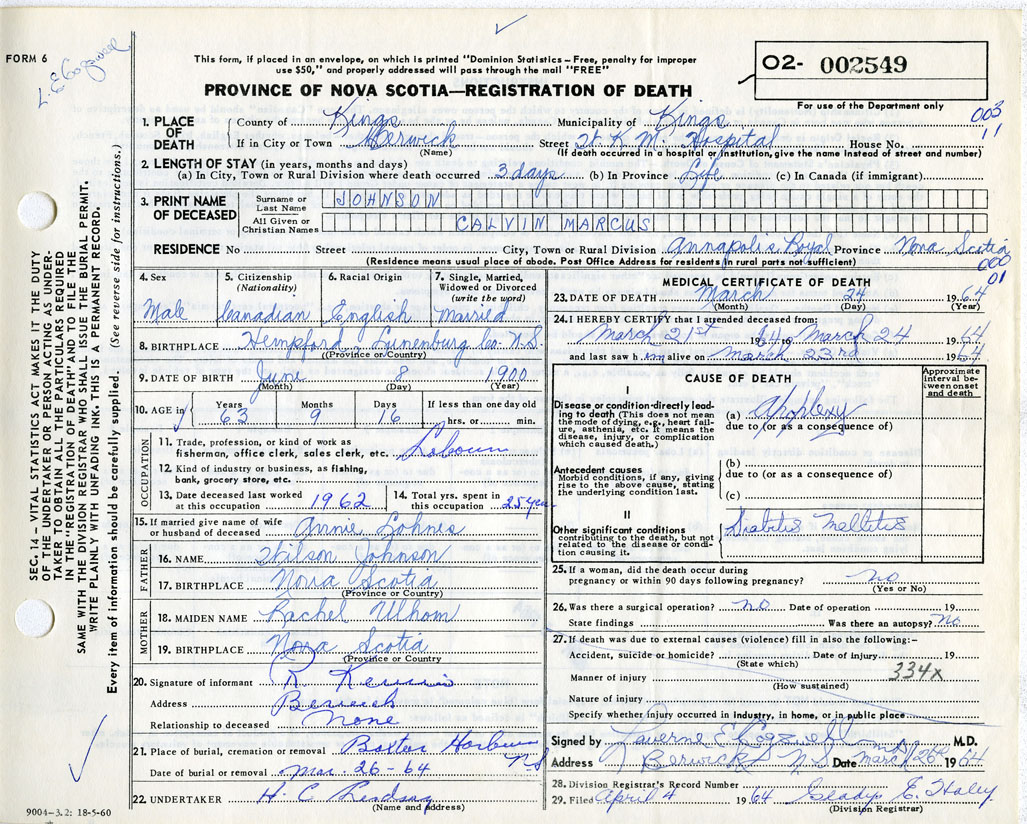 FORM 6
This form, if placed in an envelope, on which is printed "Dominion Statistics – Free, penalty for improper
use $50," and properly addressed will pass through the mail "FREE"
PROVINCE OF NOVA SCOTIA—REGISTRATION OF DEATH
02- 002549
For use of the Department only
003
11
1. PLACE OF DEATH
County of Kings Municipality of Kings
If in City or Town Berwick Street W. K. M. Hospital House No.
(Name) (If death occurred in a hospital or institution, give the name instead of street and number)
2. LENGTH OF STAY (in years, months and days)
(a) In City, Town or Rural Division where death occurred 3 days (b) In Province Life (c) In Canada (if immigrant)
3. PRINT NAME OF DECEASED
Surname or Last Name JOHNSON
All Given or Christian Names CALVIN MARCUS
RESIDENCE No Street City, Town or Rural Division Annapolis Royal Province Nova Scotia
(Residence means usual place of abode. Post Office Address for residents in rural parts not sufficient)
000
01
4. Sex
Male
5. Citizenship
(Nationality)
Canadian
6. Racial Origin
English
7. Single, Married, Widowed or Divorced
(write the word)
Married
8. BIRTHPLACE Hempford Lunenburg Co. N.S.
(Province or Country)
9. DATE OF BIRTH June 8 1900
(Month) (Day) (Year)
10. AGE in Years Months Days If less than one day old
63 9 16 hrs. or min.
OCCUPATION
11. Trade, profession, or kind of work as
fisherman, office clerk, sales clerk, etc. Labourer
12. Kind of industry or business, as fishing,
bank, grocery store, etc.
13. Date deceased last worked
at this occupation 1962
14. Total yrs. spent in
this occupation 25 yrs
15. If married give name of wife
or husband of deceased Annie Lohnes
FATHER
16. NAME Wilson Johnson
17. BIRTHPLACE Nova Scotia
(Province or Country)
MOTHER
18. MAIDEN NAME Rachel
19. BIRTHPLACE Nova Scotia
(Province or Country
20. Signature of informant R
Address Berwick
Relationship to deceased None
21. Place of burial, cremation or removal Baxters Harbour NS
Date of burial or removal Mar. 26 - 64
22. UNDERTAKER H. C. Lindsay
(Name and address)
9004–3.2: 18-5-60
SEC. 14 – VITAL STATISTICS ACT MAKES IT THE DUTY
OF THE UNDERTAKER OR PERSON ACTING AS UNDER-
TAKER TO OBTAIN ALL THE PARTICULARS REQUIRED
IN THE "REGISTRATION OF DEATH" AND TO FILE THE
SAME WITH THE DIVISION REGISTRAR WHO SHALL ISSUE THE BURIAL PERMIT.
WRITE PLAINLY WITH UNFADING INK. THIS IS A PERMANENT RECORD.
Every item of information should be carefully supplied. (See reverse side for instructions.)
MEDICAL CERTIFICATE OF DEATH
23. DATE OF DEATH March 24 1964
(Month) (Day) (Year)
24. I HEREBY CERTIFY that I attended deceased from:
March 21st 1964 to March 24 1964
and last saw him alive on March 23rd 1964
CAUSE OF DEATH
Approximate interval be-
tween onset
and death
I
Disease or condition directly lead-
ing to death (This does not mean
the mode of dying, e.g., heart fail-
ure, asthenia, etc. It means the
disease, injury, or complication
which caused death.)
(a) Apoplexy
due to (or as a consequence of)
Antecedent causes
Morbid conditions, if any, giving
rise to the above cause, stating
the underlying condition last.
(b)
due to (or as a consequence of)
(c)
II
Other significant conditions
contributing to the death, but not
related to the disease or condi-
tion causing it.
Diabetes Mellitis
25. If a woman, did the death occur during
pregnancy or within 90 days following pregnancy? no
(Yes or No)
26. Was there a surgical operation? no Date of operation 19
State findings Was there an autopsy? No
27. If death was due to external causes (violence) fill in also the following:–
Accident, suicide or homicide? Date of injury 19
(State which)
Manner of injury 334x
(How sustained)
Nature of injury
Specify whether injury occurred in industry, in home, or in public place
Signed by Laverne E Cogswell M.D.
Address Berwick N S Date March 26 1964
28. Division Registrar's Record Number
29. Filed April 4 1964 Gladys E. Haley
(Division Registrar)